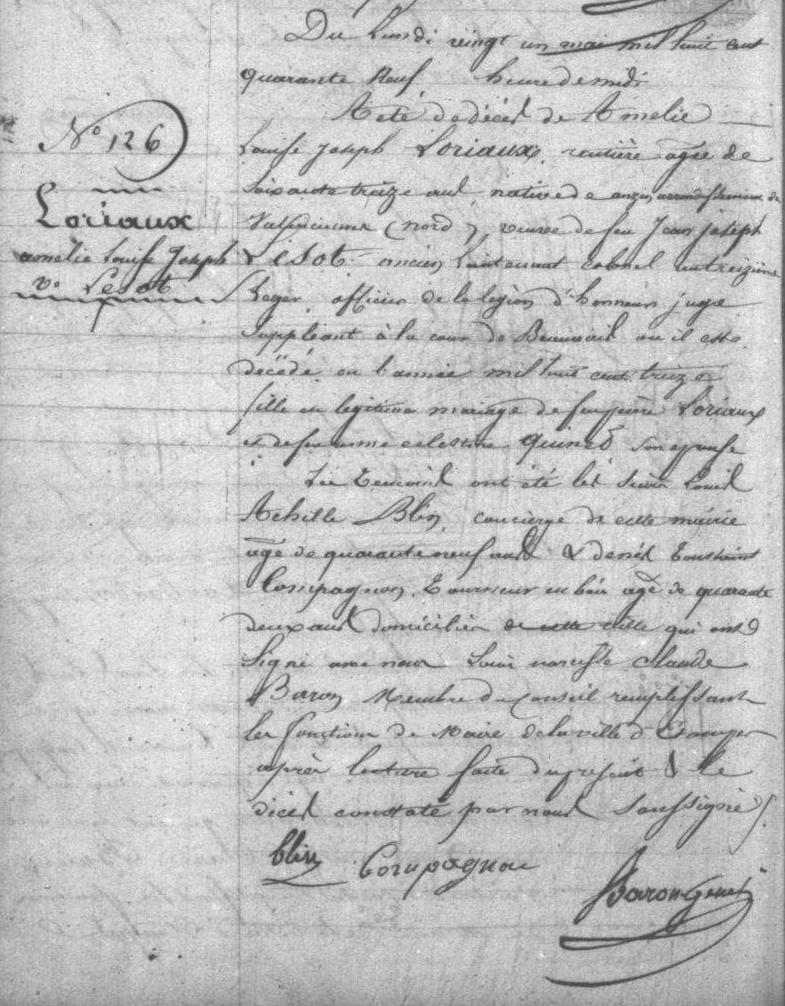 Du Lundi vingt un mai mil huit cent
quarante Neuf heure de midi
Acte de décès de Amelie
N° 126
Louise Joseph Loriaux, rentière agée de
soixante treize ans, native de anzin arrondissement de
Loriaux
Valenciennes (nord), veuve de feu Jean joseph
amelie Louise Joseph
Lesot. ancien Lieutenant colonel au treizième
ve Lesot
Leger, officier de la legion d'honneur juge
suppléant à la cour de Beauvais ou il est
décédé en l'année mil huit cent treize
fille en legitime mariage de feu pierre Loriaux
et de feu anne celestine quinet son epouse
Les Temoins ont été les sieurs Louis
Achille Blin, concierge de cette mairie
agé de quarante neuf ans & denis Toussaint
Compagnon, Tourneur en bois agé de quarante
deux ans domiciliés de cette ville qui ont
signé avec nous Louis narcisse Claude
Baron Membre du Conseil remplissant
les fonctions de Maire de la ville d'Etampes
après lecture faite du présent & le
décès constaté par nous soussigné
Blin Compagnon
Baron Genet